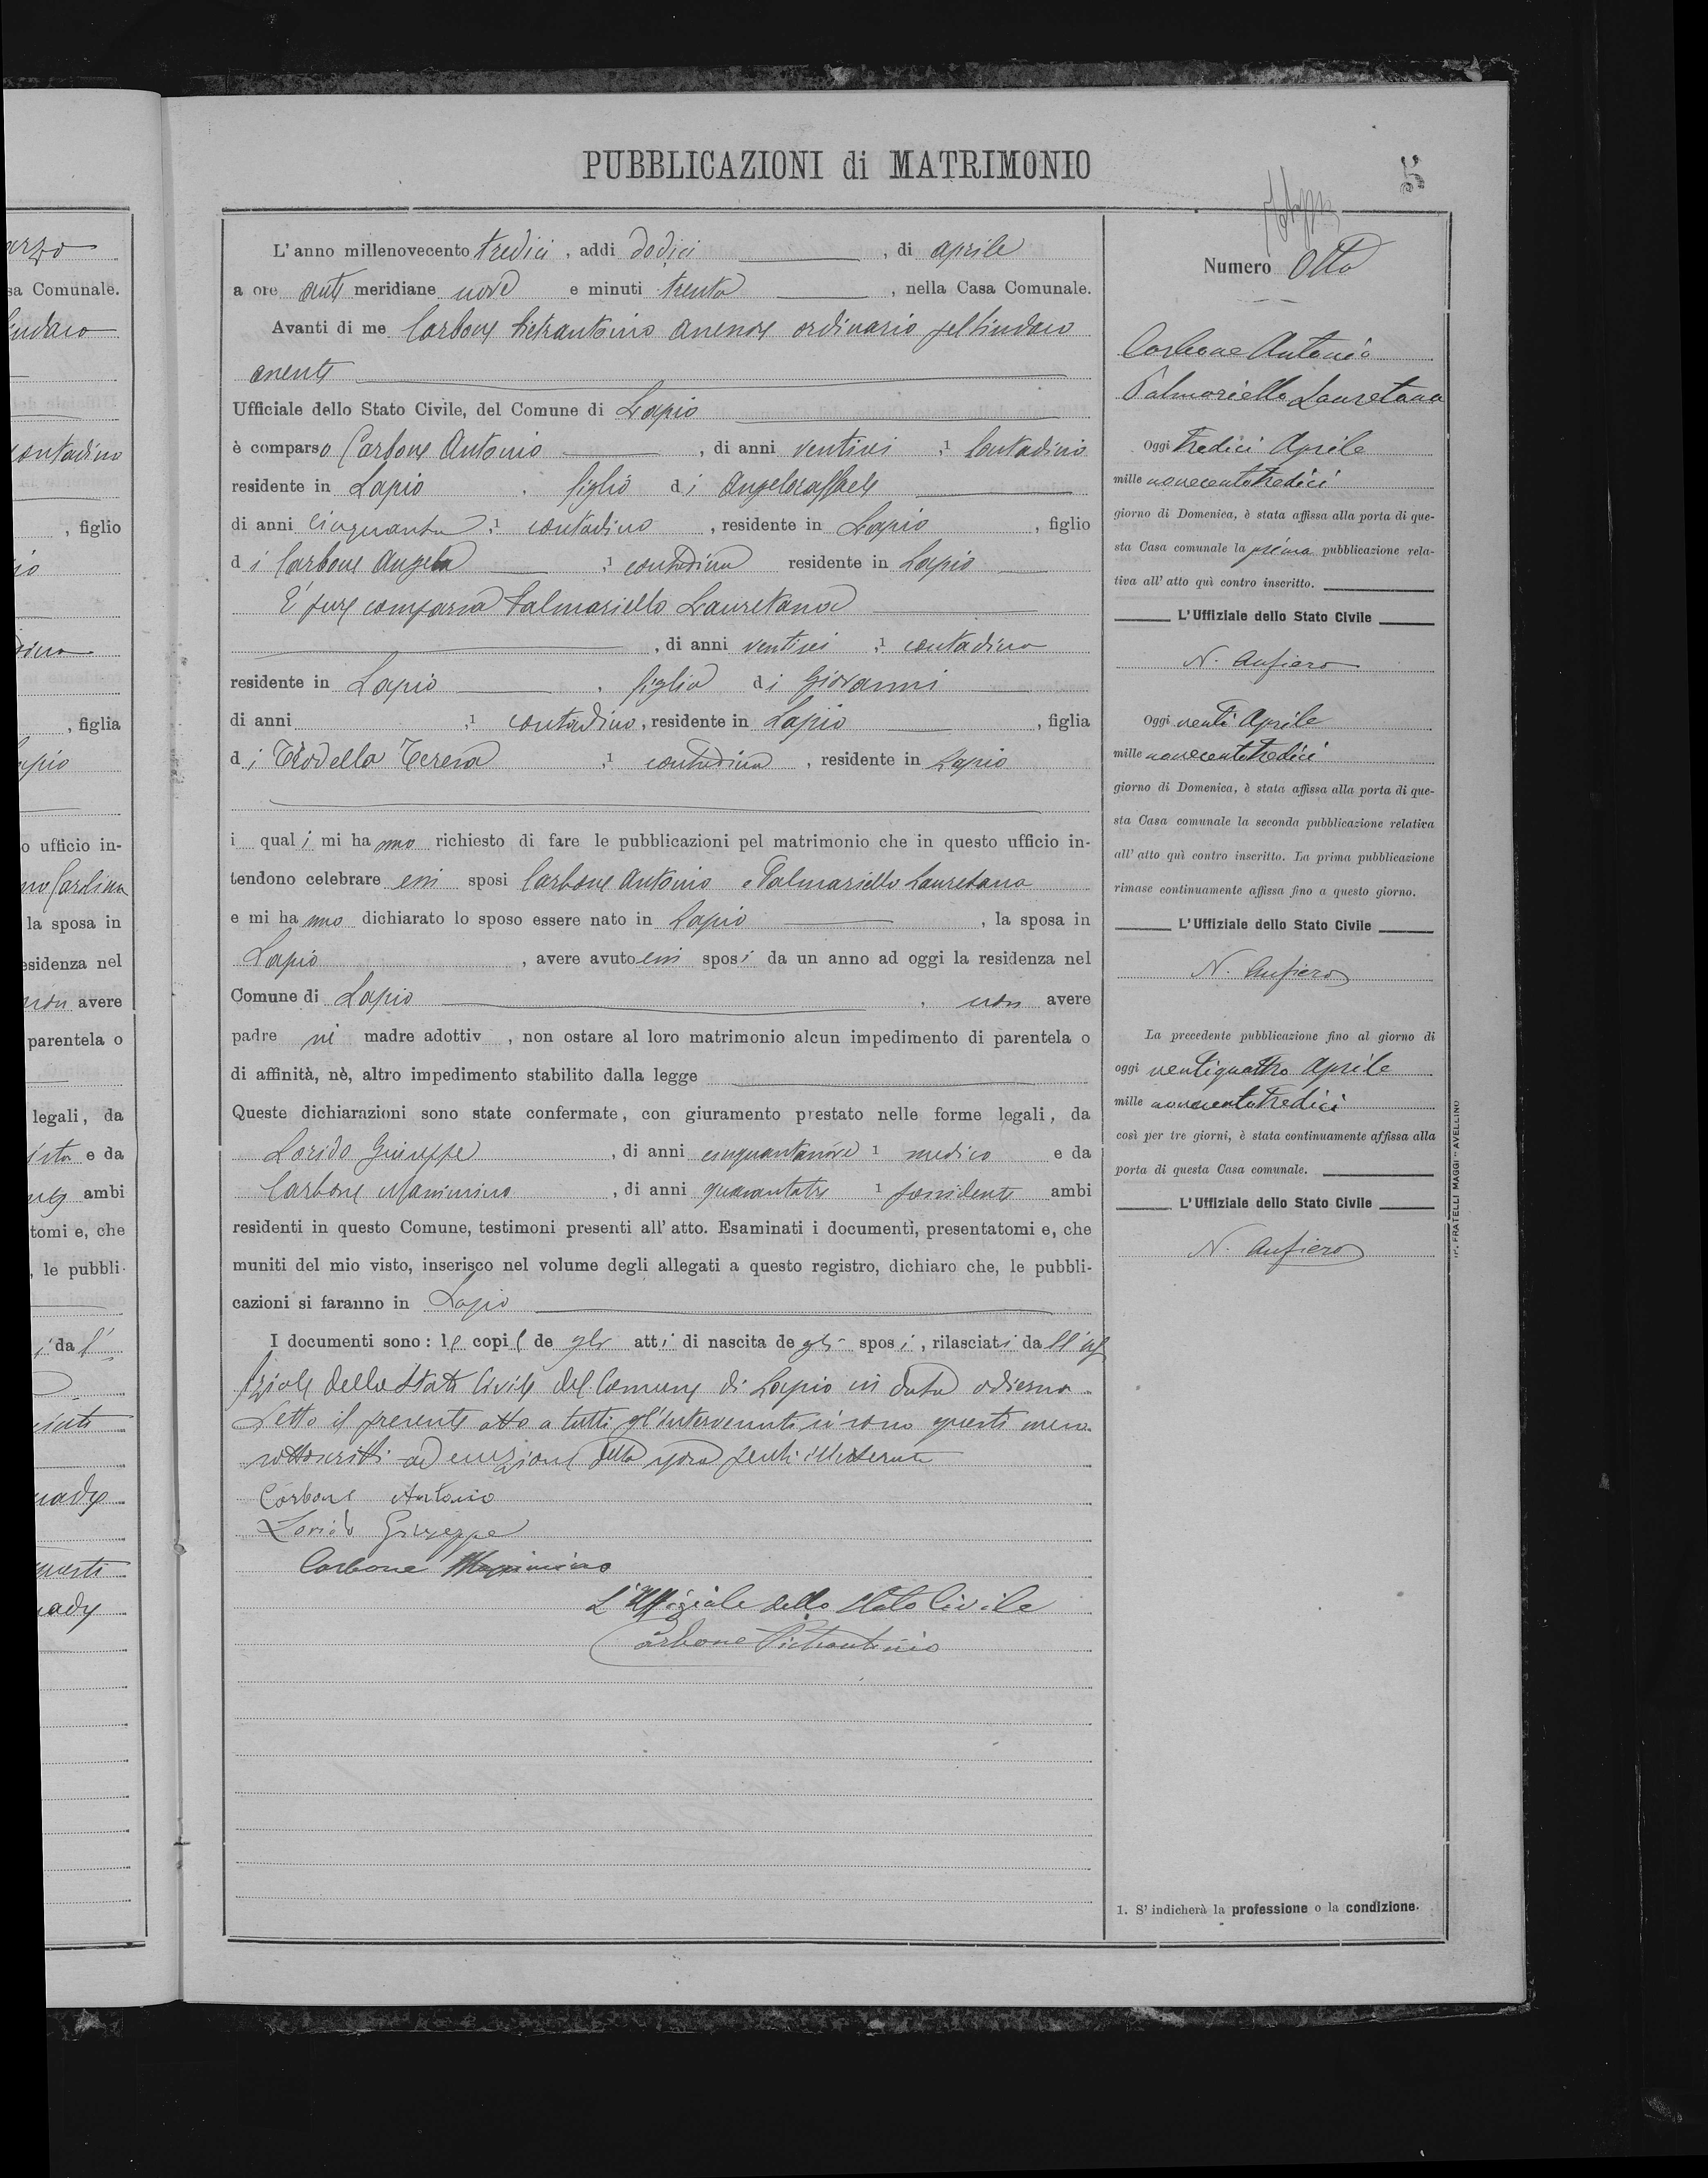 PUBBLICAZIONI di MATRIMONIO
5
L'anno millenovecento tredici, addi dodici, di aprile
a ore anti meridiane nove e minuti trenta, nella Casa Comunale.
Avanti di me Carbone Pietrantonio assessore ordinario pel Sindaco
assente
Ufficiale dello Stato Civile, del Comune di Lapio
è comparso Carbone Antonio, di anni ventisei, 1 Contadino
residente in Lapio, figlio di Angeloraffaele
di anni cinquanta, 1 contadino, residente in Lapio, figlio
di Carbone Angela, 1 contadina residente in Lapio
E' pure comparsa Palmariello Lauretana
, di anni ventisei, 1 contadina
residente in Lapio, figlia di Giovanni
di anni, 1 contadino, residente in Lapio, figlia
di Trodella Teresa, 1 contadina, residente in Lapio
i quali mi hanno richiesto di fare le pubblicazioni pel matrimonio che in questo ufficio in-
tendono celebrare essi sposi Carbone Antonio e Palmariello Lauretana
e mi hanno dichiarato lo sposo essere nato in Lapio, la sposa in
Lapio, avere avuto essi sposi da un anno ad oggi la residenza nel
Comune di Lapio, non avere
padre nè madre adottiv, non ostare al loro matrimonio alcun impedimento di parentela o
di affinità, nè, altro impedimento stabilito dalla legge
Queste dichiarazioni sono state confermate, con giuramento prestato nelle forme legali, da
Lorido Giuseppe, di anni cinquantanove 1 medico e da
Carbone Massimino, di anni quarantatre 1 possidente ambi
residenti in questo Comune, testimoni presenti all'atto. Esaminati i documenti, presentatomi e, che
muniti del mio visto, inserisco nel volume degli allegati a questo registro, dichiaro che, le pubbli-
cazioni si faranno in Lapio
I documenti sono: le copie de gli atti di nascita de gli sposi, rilasciati dall'uf
fiziale dello Stato Civile del Comune di Lapio in data odierna
Letto il presente atto a tutti gl'intervenuti si sono questi meco
sottoscritti ad eccezione della sposa perchè illetterata
Carbone Antonio
Lorido Giuseppe
Carbone Massimino
L'Uffiziale dello Stato Civile
Carbone Pietrantonio
Numero Otto
Carbone Antonio
Palmariello Lauretana
Oggi tredici Aprile
mille novecentotredici
giorno di Domenica, è stata affissa alla porta di que-
sta Casa comunale la prima pubblicazione rela-
tiva all'atto quì contro inscritto.
L'Uffiziale dello Stato Civile
N. Anfiero
Oggi venti Aprile
mille novecentotredici
giorno di Domenica, è stata affissa alla porta di que-
sta Casa comunale la seconda pubblicazione relativa
all'atto quì contro inscritto. La prima pubblicazione
rimase continuamente affissa fino a questo giorno.
L'Uffiziale dello Stato Civile
N. Anfiero
La precedente pubblicazione fino al giorno di
oggi ventiquattro Aprile
mille novecentotredici
così per tre giorni, è stata continuamente affissa alla
porta di questa Casa comunale.
L'Uffiziale dello Stato Civile
N. Anfiero
1. S'indicherà la professione o la condizione.
FRATELLI MAGGI - AVELLINO
sa Comunale.
contadino
, figlio
, figlia
o ufficio in-
la sposa in
esidenza nel
non avere
parentela o
legali, da
e da
ambi
tomi e, che
, le pubbli-
i da l'